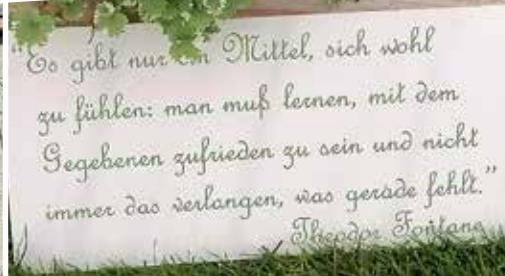 "Es gibt nur ein Mittel, sich wohl
zu fühlen: man muß lernen, mit dem
Gegebenen zufrieden zu sein und nicht
immer das verlangen, was gerade fehlt."
Theodor Fontane